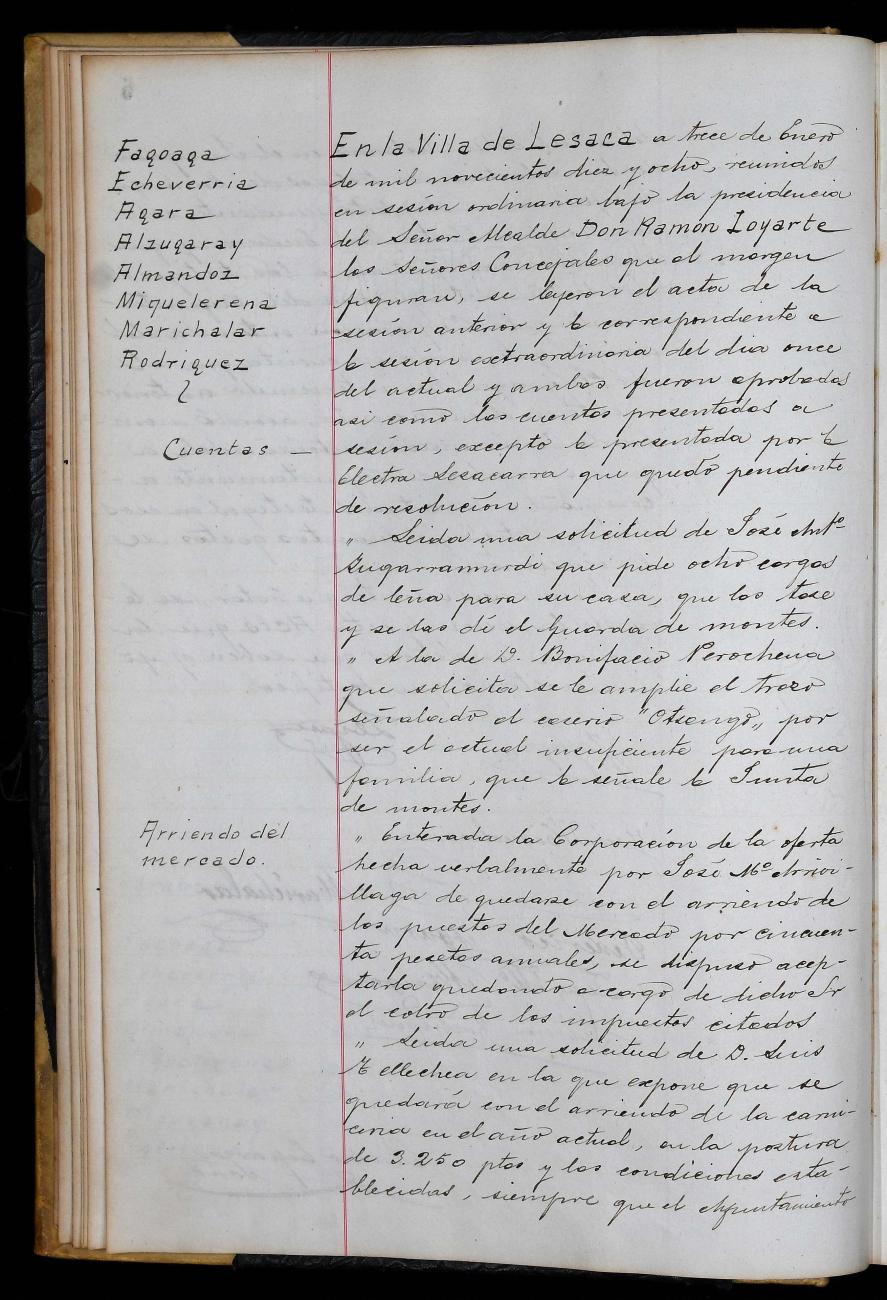 Fagoaga
Echeverria
Agara
Alzugaray
Almandoz
Miguelerena
Marichalar
Rodriguez
En la Villa de Lesaca a trece de Enero
de mil novecientos diez y ocho, reunidos
en sesión ordinaria bajo la presidencia
del Señor Alcalde Don Ramón Loyarte
los Señores Concejales que al margen
figuran, se leyeron el acta de la
sesión anterior y la correspondiente a
la sesión extraordinaria del dia once
del actual y ambas fueron aprobadas
asi como las cuentas presentadas a
Cuentas —
sesión, excepto la presentada por la
Electra Lesacarra que quedó pendiente
de resolución.
" Leida una solicitud de José Antº
Zugarramurdi que pide ocho cargas
de leña para su casa, que las tase
y se las dé el Guarda de montes.
" A la de D. Bonifacio Perochena
que solicita se le amplie el trozo
señalado al caserio "Otsango" por
ser el actual insuficiente para una
familia, que la señale la Junta
de montes.
Arriendo del
mercado.
" Enterada la Corporación de la oferta
hecha verbalmente por José Mª Arrivi-
llaga de quedarse con el arriendo de
los puestos del Mercado por cincuen-
ta pesetas anuales, se dispuso acep-
tarla quedando a cargo de dicho Sr
el cobro de los impuestos citados
" Leida una solicitud de D. Luis
Tellechea en la que expone que se
quedará con el arriendo de la carni-
ceria en el año actual, en la postura
de 3.250 ptas y las condiciones esta-
blecidas, siempre que el Ayuntamiento